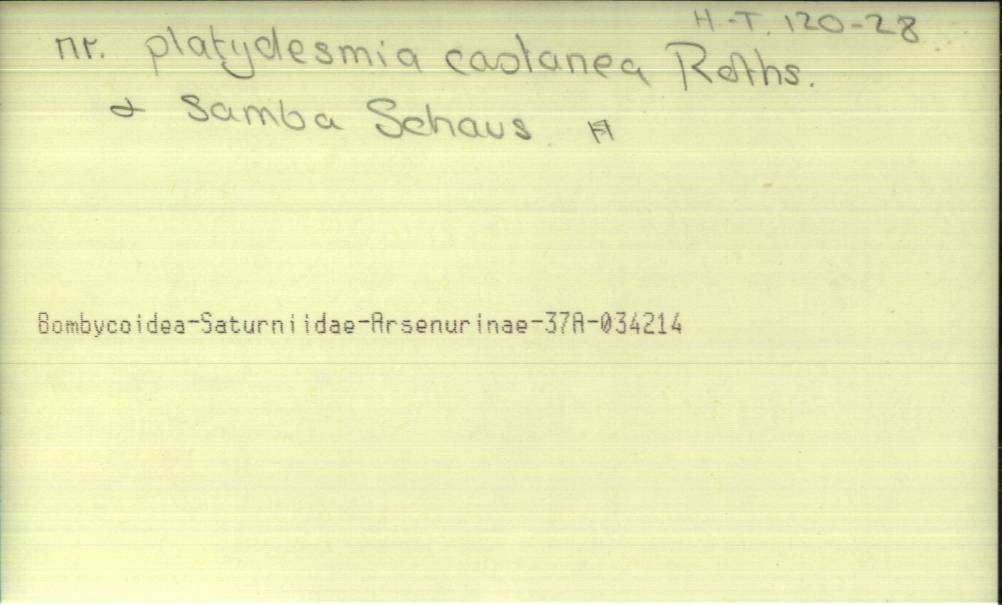 H.-T. 120-28
nr. platydesmia castanea Roths.
& samba Schaus
Bombycoidea-Saturniidae-Arsenurinae-37A-034214